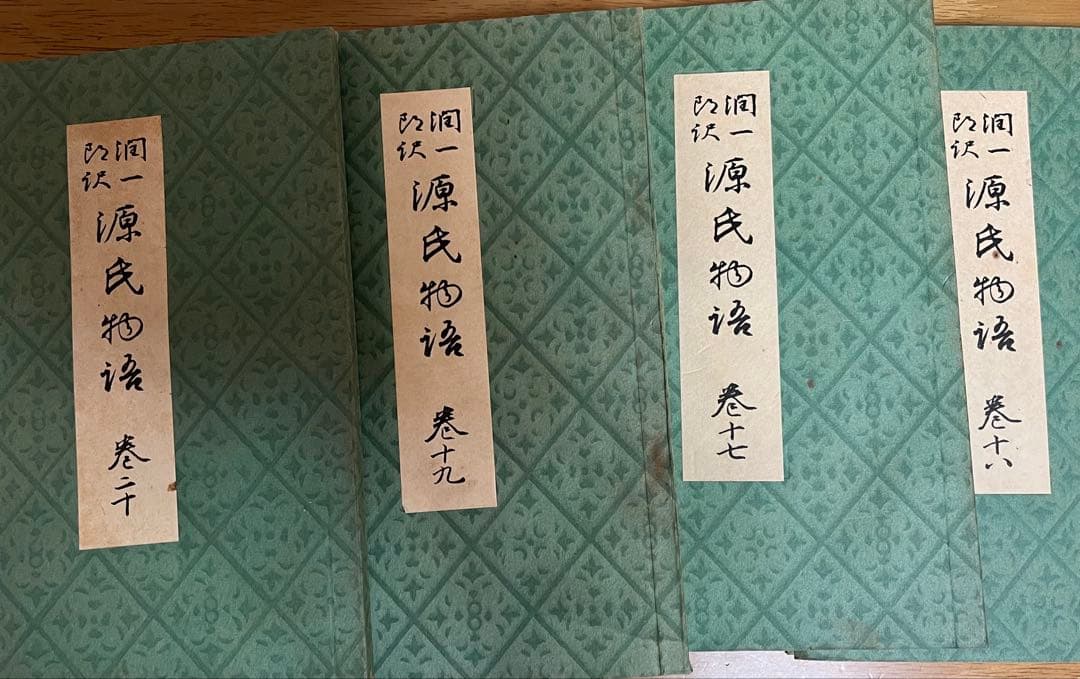 潤一
郎訳
源氏物語 巻二十
潤一
郎訳
源氏物語 巻十九
潤一
郎訳
源氏物語 巻十七
潤一
郎訳
源氏物語 巻十八